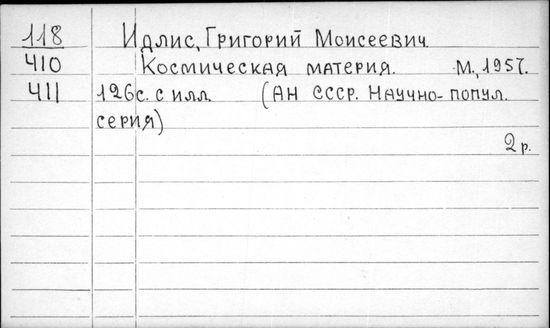 118 Идлис, Григорий Моисеевич.
410 Космическая материя. М., 1957.
411 126с. с илл. (АН СССР. Научно-попул.
серия)
2 р.